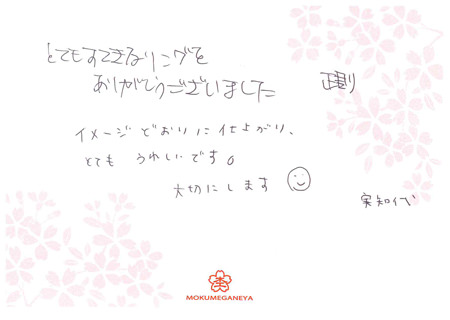 とてもすてきなリングを
ありがとうございました
イメージどおりに仕上がり、
とても うれしいです。
大切にします
実知代
MOKUMEGANEYA